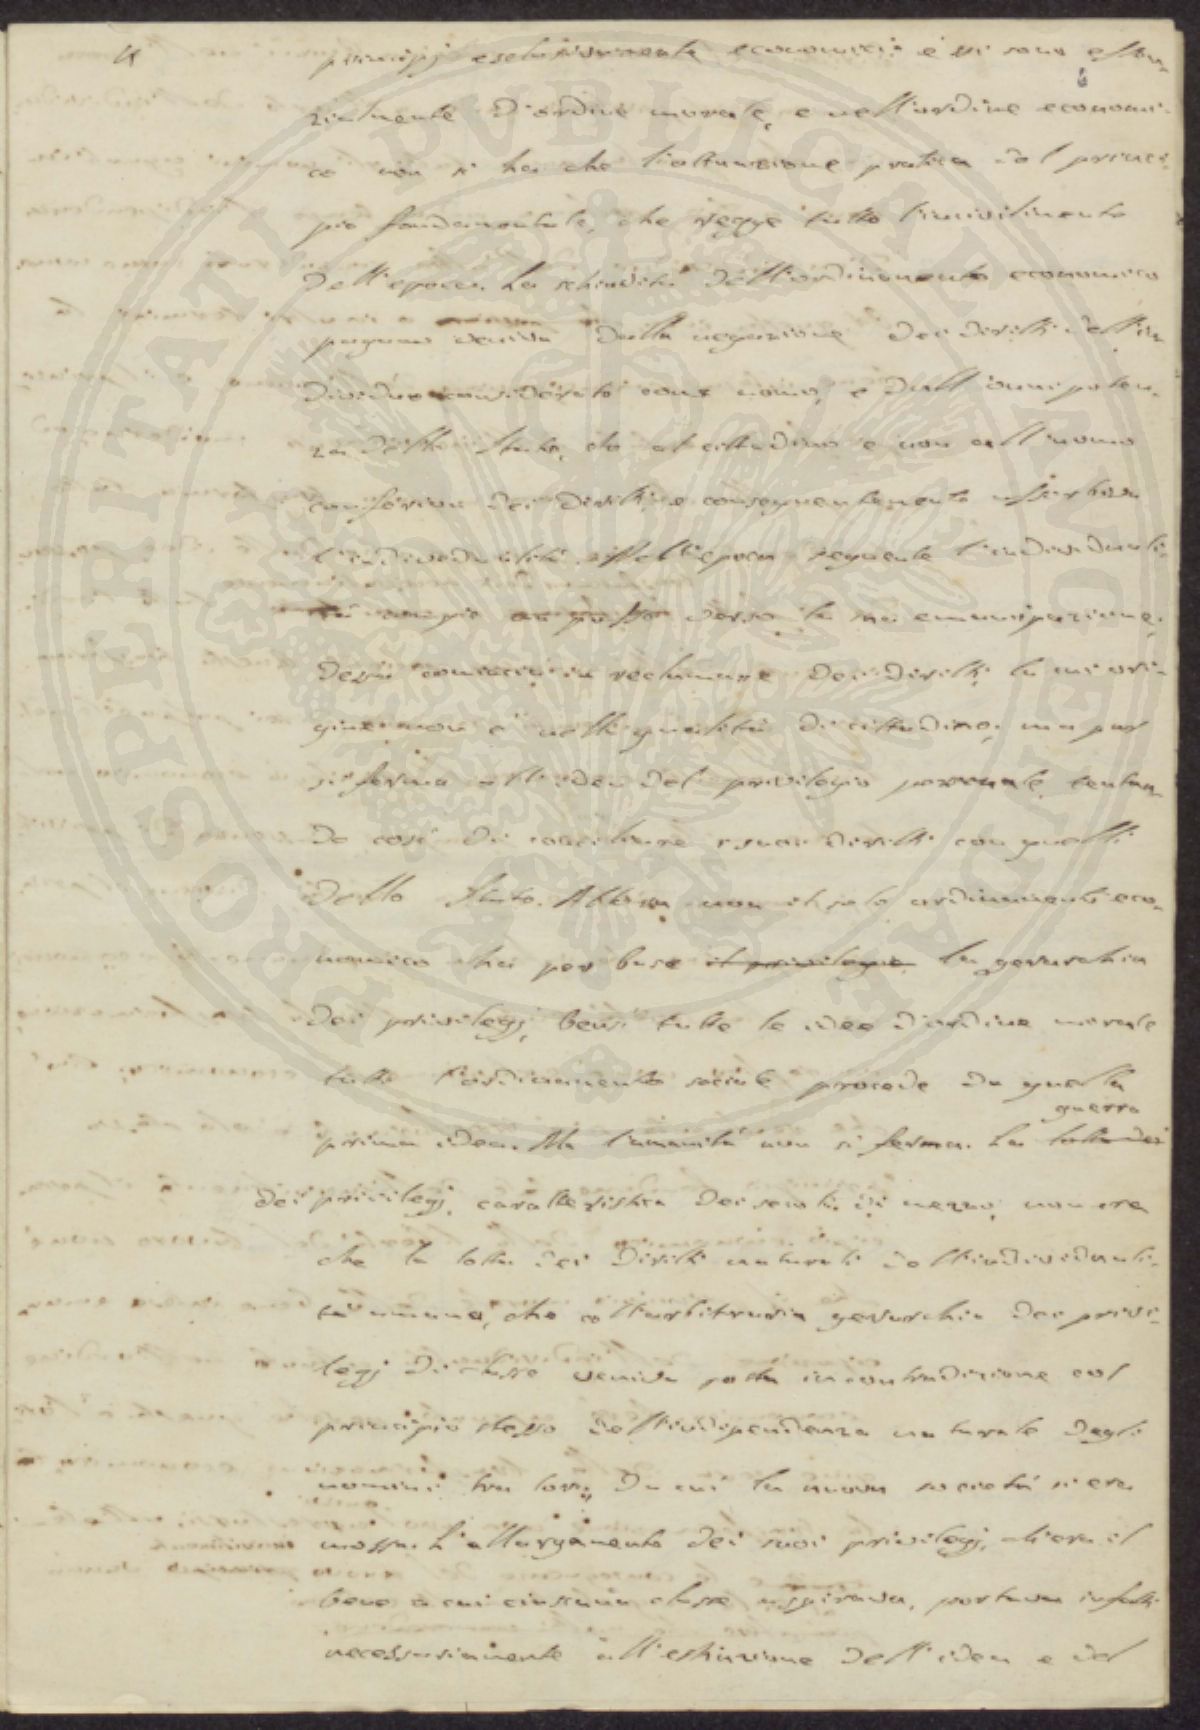 4
principj esclusivamente economici: essi sono essen-
zialmente d'ordine morale, e nell'ordine economi-
co non si ha che l'attuazione pratica del princi-
pio fondamentale, che regge tutto l'incivilimento
dell'epoca. La schiavitù dell'ordinamento economico
pagano veniva dalla negazione dei diritti dell'in-
dividuo considerato come uomo, e dall'onnipoten-
za dello Stato, che al cittadino e non all'uomo
conferiva dei diritti, e conseguentemente assorbiva
l'individualità. Nell'epoca seguente l'individuali-
tà compie un passo verso la sua emancipazione;
dessa comincia a reclamare dei diritti, la cui ori-
gine non è nella qualità di cittadino; ma pur
si ferma all'idea del privilegio personale, tentan-
do così di conciliare i suoi diritti con quelli
dello Stato. Allora non il solo ordinamento eco-
nomico ha per base il privilegio, la gerarchia
dei privilegj, bensì tutte le idee d'ordine morale
tutto l'ordinamento sociale procede da quella
prima idea. Ma l'umanità non si ferma. La lotta dei guerra
dei privilegj, caratteristica dei secoli di mezzo, non era
che la lotta dei diritti naturali dell'individuali-
tà umana, che coll'arbitraria gerarchia dei privi-
legj di classe veniva posta in contraddizione col
principio stesso dell'indipendenza naturale degli
uomini tra loro, da cui la nuova società si era
mossa. L'allargamento dei suoi privilegj, ch'era il
bene a cui ciascuna classe aspirava, portava infatti
necessariamente all'estinzione dell'idea e del
PROSPERITATI PVBLICAE AVGENDAE